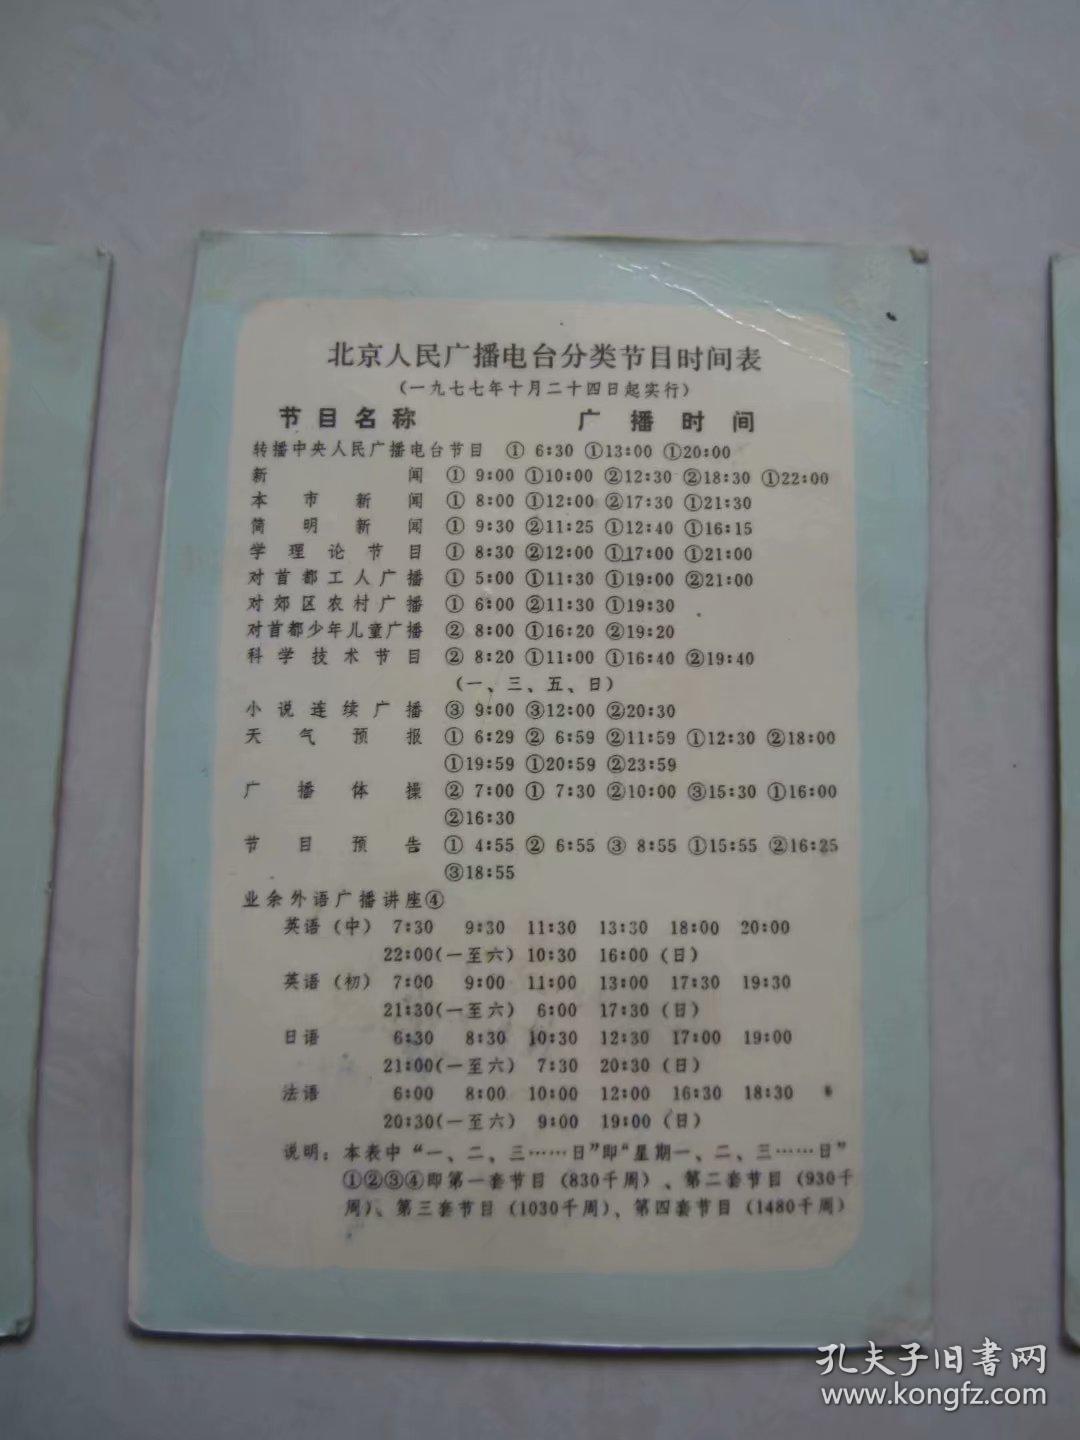 北京人民广播电台分类节目时间表
(一九七七年十月二十四日起实行)
节目名称 广播时间
转播中央人民广播电台节目 ① 6:30 ①13:00 ①20:00
新闻 ① 9:00 ①10:00 ②12:30 ②18:30 ①22:00
本市新闻 ① 8:00 ①12:00 ②17:30 ①21:30
简明新闻 ① 9:30 ②11:25 ①12:40 ①16:15
学理论节目 ① 8:30 ②12:00 ①17:00 ①21:00
对首都工人广播 ① 5:00 ①11:30 ①19:00 ②21:00
对郊区农村广播 ① 6:00 ②11:30 ①19:30
对首都少年儿童广播 ② 8:00 ①16:20 ②19:20
科学技术节目 ② 8:20 ①11:00 ①16:40 ②19:40
(一、三、五、日)
小说连续广播 ③ 9:00 ③12:00 ②20:30
天气预报 ① 6:29 ② 6:59 ②11:59 ①12:30 ②18:00
①19:59 ①20:59 ②23:59
广播体操 ② 7:00 ① 7:30 ②10:00 ③15:30 ①16:00
②16:30
节目预告 ① 4:55 ② 6:55 ③ 8:55 ①15:55 ②16:25
③18:55
业余外语广播讲座④
英语(中) 7:30 9:30 11:30 13:30 18:00 20:00
22:00(一至六) 10:30 16:00(日)
英语(初) 7:00 9:00 11:00 13:00 17:30 19:30
21:30(一至六) 6:00 17:30(日)
日语 6:30 8:30 10:30 12:30 17:00 19:00
21:00(一至六) 7:30 20:30(日)
法语 6:00 8:00 10:00 12:00 16:30 18:30
20:30(一至六) 9:00 19:00(日)
说明：本表中“一、二、三……日”即“星期一、二、三……日”
①②③④即第一套节目(830千周)、第二套节目(930千
周)、第三套节目(1030千周)、第四套节目(1480千周)
孔夫子旧書网
www.kongfz.com